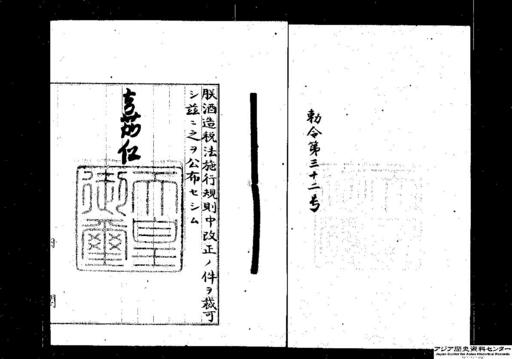 勅令第三十二号
朕酒造税法施行規則中改正ノ件ヲ裁可
シ茲ニ之ヲ公布セシム
嘉仁
天皇
御璽
アジア歴史資料センター
Japan Center for Asian Historical Records